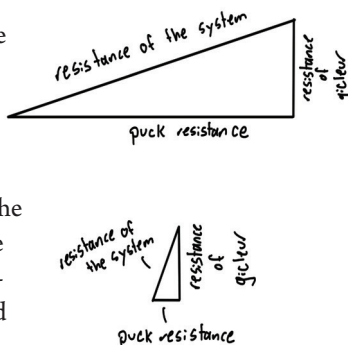 e
resistance of the system
resistance
of
gicleur
puck resistance
he
e
-
d
resistance of
the system
resistance
of
gicleur
puck resistance